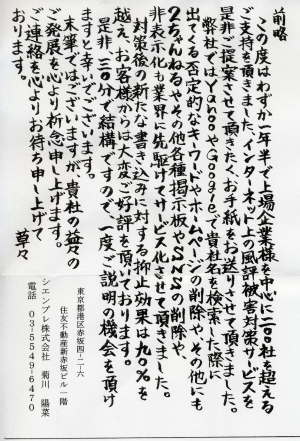 前略
この度はわずか一年半で上場企業様を中心に二〇〇社を超える
ご支持を頂きました、インターネット上の風評被害対策サービスを
是非ご提案させて頂きたく、お手紙をお送りさせて頂きました。
弊社ではYahooやGoogleで貴社名を検索した際に
出てくる否定的なキーワードやホームページの削除や、その他にも
2ちゃんねるやその他各種掲示板やSNSの削除や、
非表示化も業界に先駆けてサービス化させて頂きました。
対策後の新たな書き込みに対する抑止効果は九〇%を
越え、お客様からは大変ご好評を頂いております。
是非、三〇分で結構ですので、一度ご説明の機会を頂け
ますと幸いでございます。
末筆ではございますが、貴社の益々の
ご発展を心より祈念申し上げます。
ご連絡を心よりお待ち申し上げて
おります。
草々
東京都港区赤坂四-二-六
住友不動産新赤坂ビル一階
シエンプレ株式会社 菊川 陽菜
電話 03-5549-6470